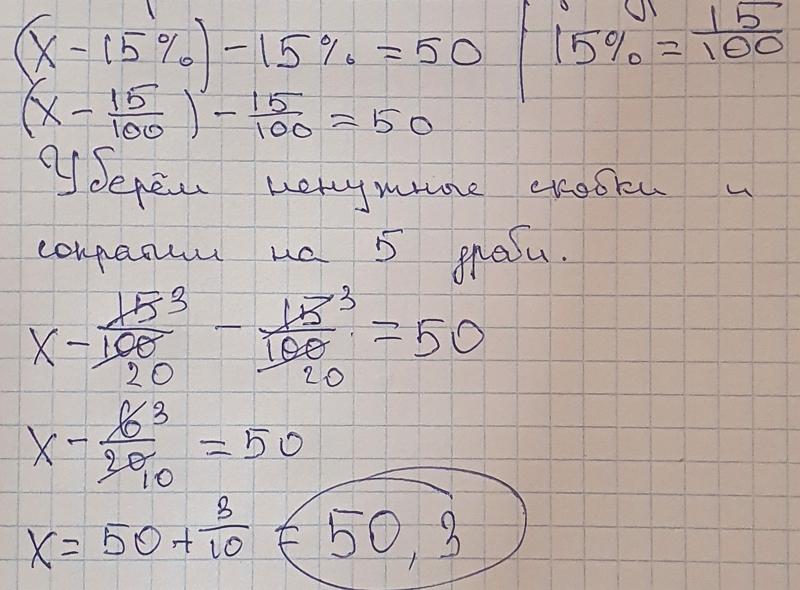 (x - 15%) - 15% = 50 | 15% = 15/100
(x - 15/100) - 15/100 = 50
Уберём ненужные скобки и
сократим на 5 дроби.
x - 15/100 3/20 - 15/100 3/20 = 50
x - 6/20 3/10 = 50
x = 50 + 3/10 = 50,3